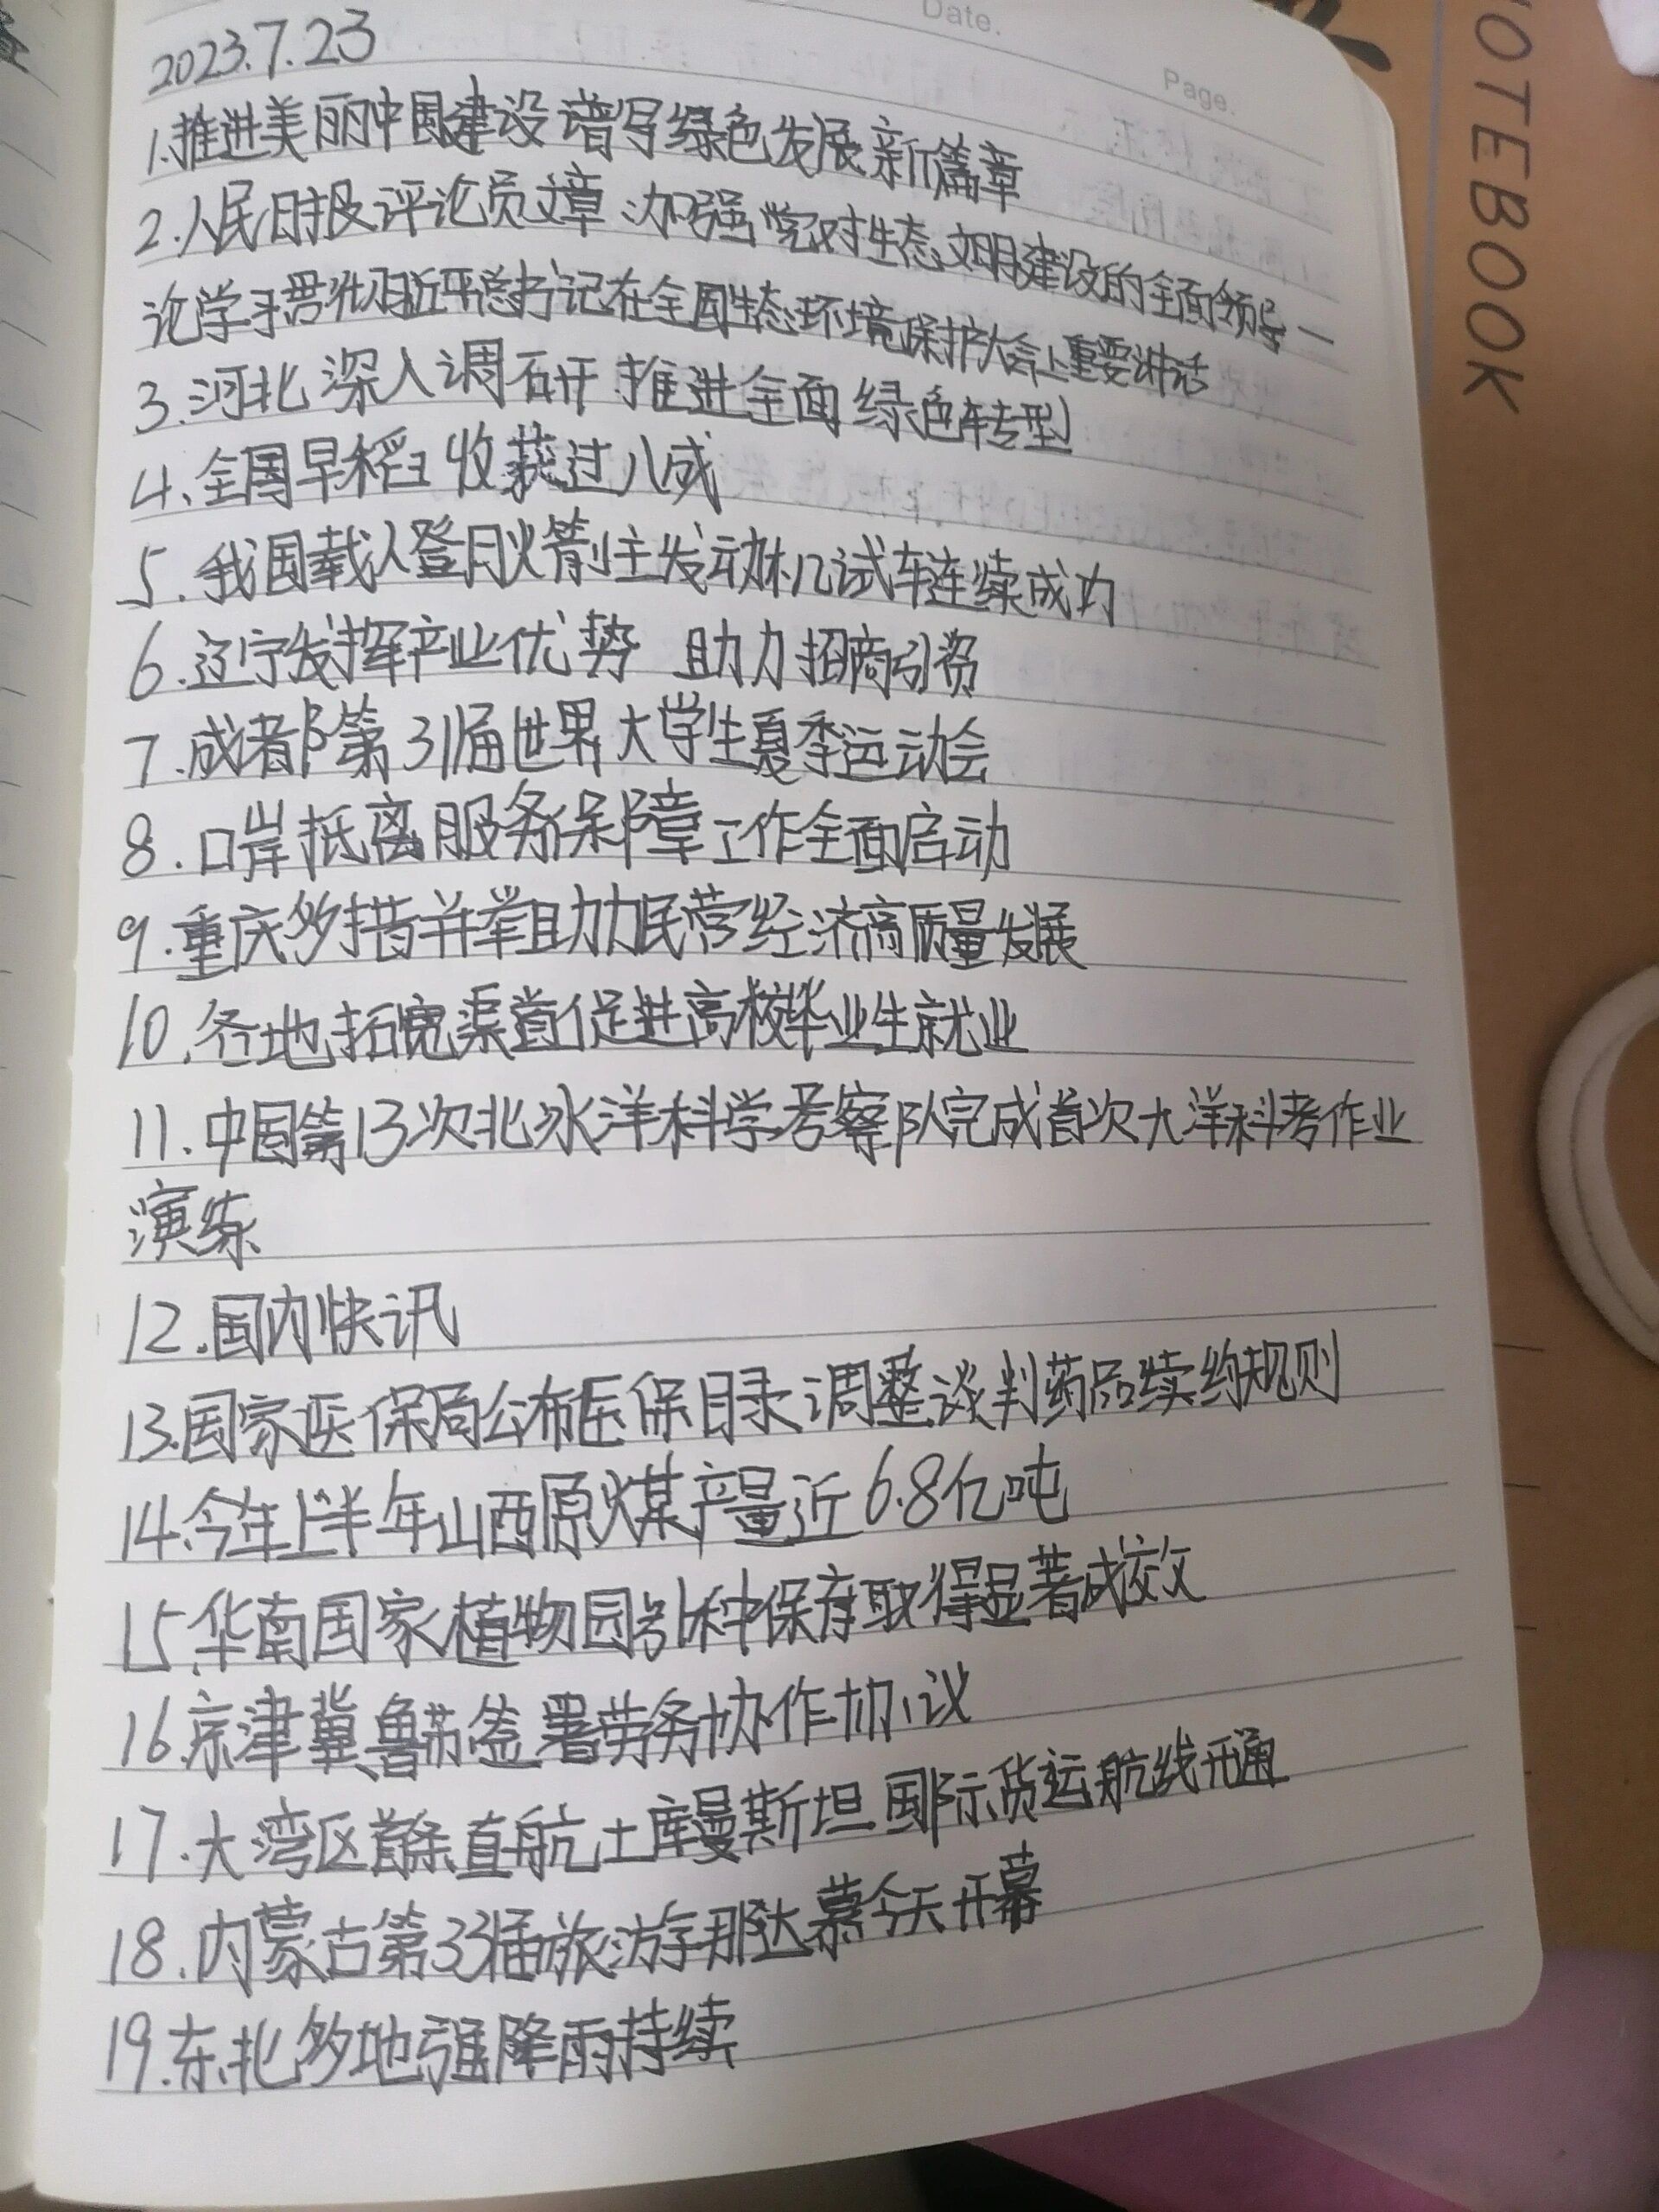 Date.
Page.
NOTEBOOK
2023.7.23
1.推进美丽中国建设 谱写绿色发展新篇章
2.人民日报评论员文章:加强党对生态文明建设的全面领导一
论学习贯彻习近平总书记在全国生态环境保护大会上重要讲话
3.河北深入调研 推进全面绿色转型
4.全国早稻收获过八成
5.我国载人登月火箭主发动机试车连续成功
6.辽宁发挥产业优势 助力招商引资
7.成都第31届世界大学生夏季运动会
8.口岸抵离服务保障工作全面启动
9.重庆多措并举助力民营经济高质量发展
10.各地拓宽渠道促进高校毕业生就业
11.中国第13次北冰洋科学考察队完成首次大洋科考作业
演练
12.国内快讯
13.国家医保局公布医保目录调整谈判药品续约规则
14.今年上半年山西原煤产量近6.8亿吨
15.华南国家植物园引种保存取得显著成效
16.京津冀鲁苏签署劳务协作协议
17.大湾区首条直航土库曼斯坦国际货运航线开通
18.内蒙古第33届旅游那达慕今天开幕
19.东北多地强降雨持续